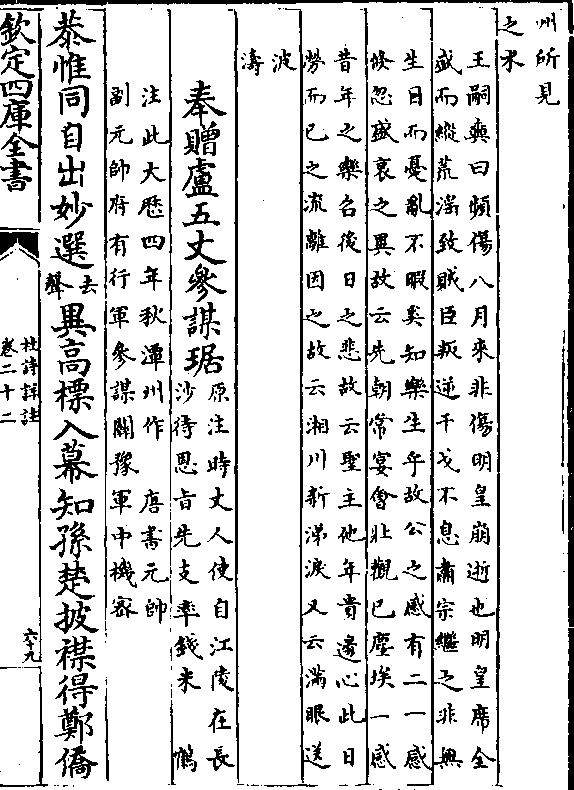 州所見
之木
王嗣奭曰頻傷八月來非傷明皇崩逝也明皇席全
盛而縱荒滛致賊臣叛逆干戈不息肅宗繼之非無
生日而憂亂不暇矣知樂生乎故公之感有二一感
倐忽盛衰之異故云先朝常宴會壯觀已塵埃一感
昔年之樂召後日之悲故云聖主他年貴邊心此日
勞而已之流離因之故云湘川新涕淚又云滿眼送
波
濤
奉贈盧五丈參謀琚
原注時丈人使自江陵在長
沙待恩旨先支率錢米 鶴
注此大厯四年秋潭州作 唐書元帥
副元帥府有行軍參謀關豫軍中機宻
恭惟同自出妙選去聲異高標入幕知孫楚披襟得鄭僑
欽定四庫全書
杜詩詳註
卷二十二
六十九